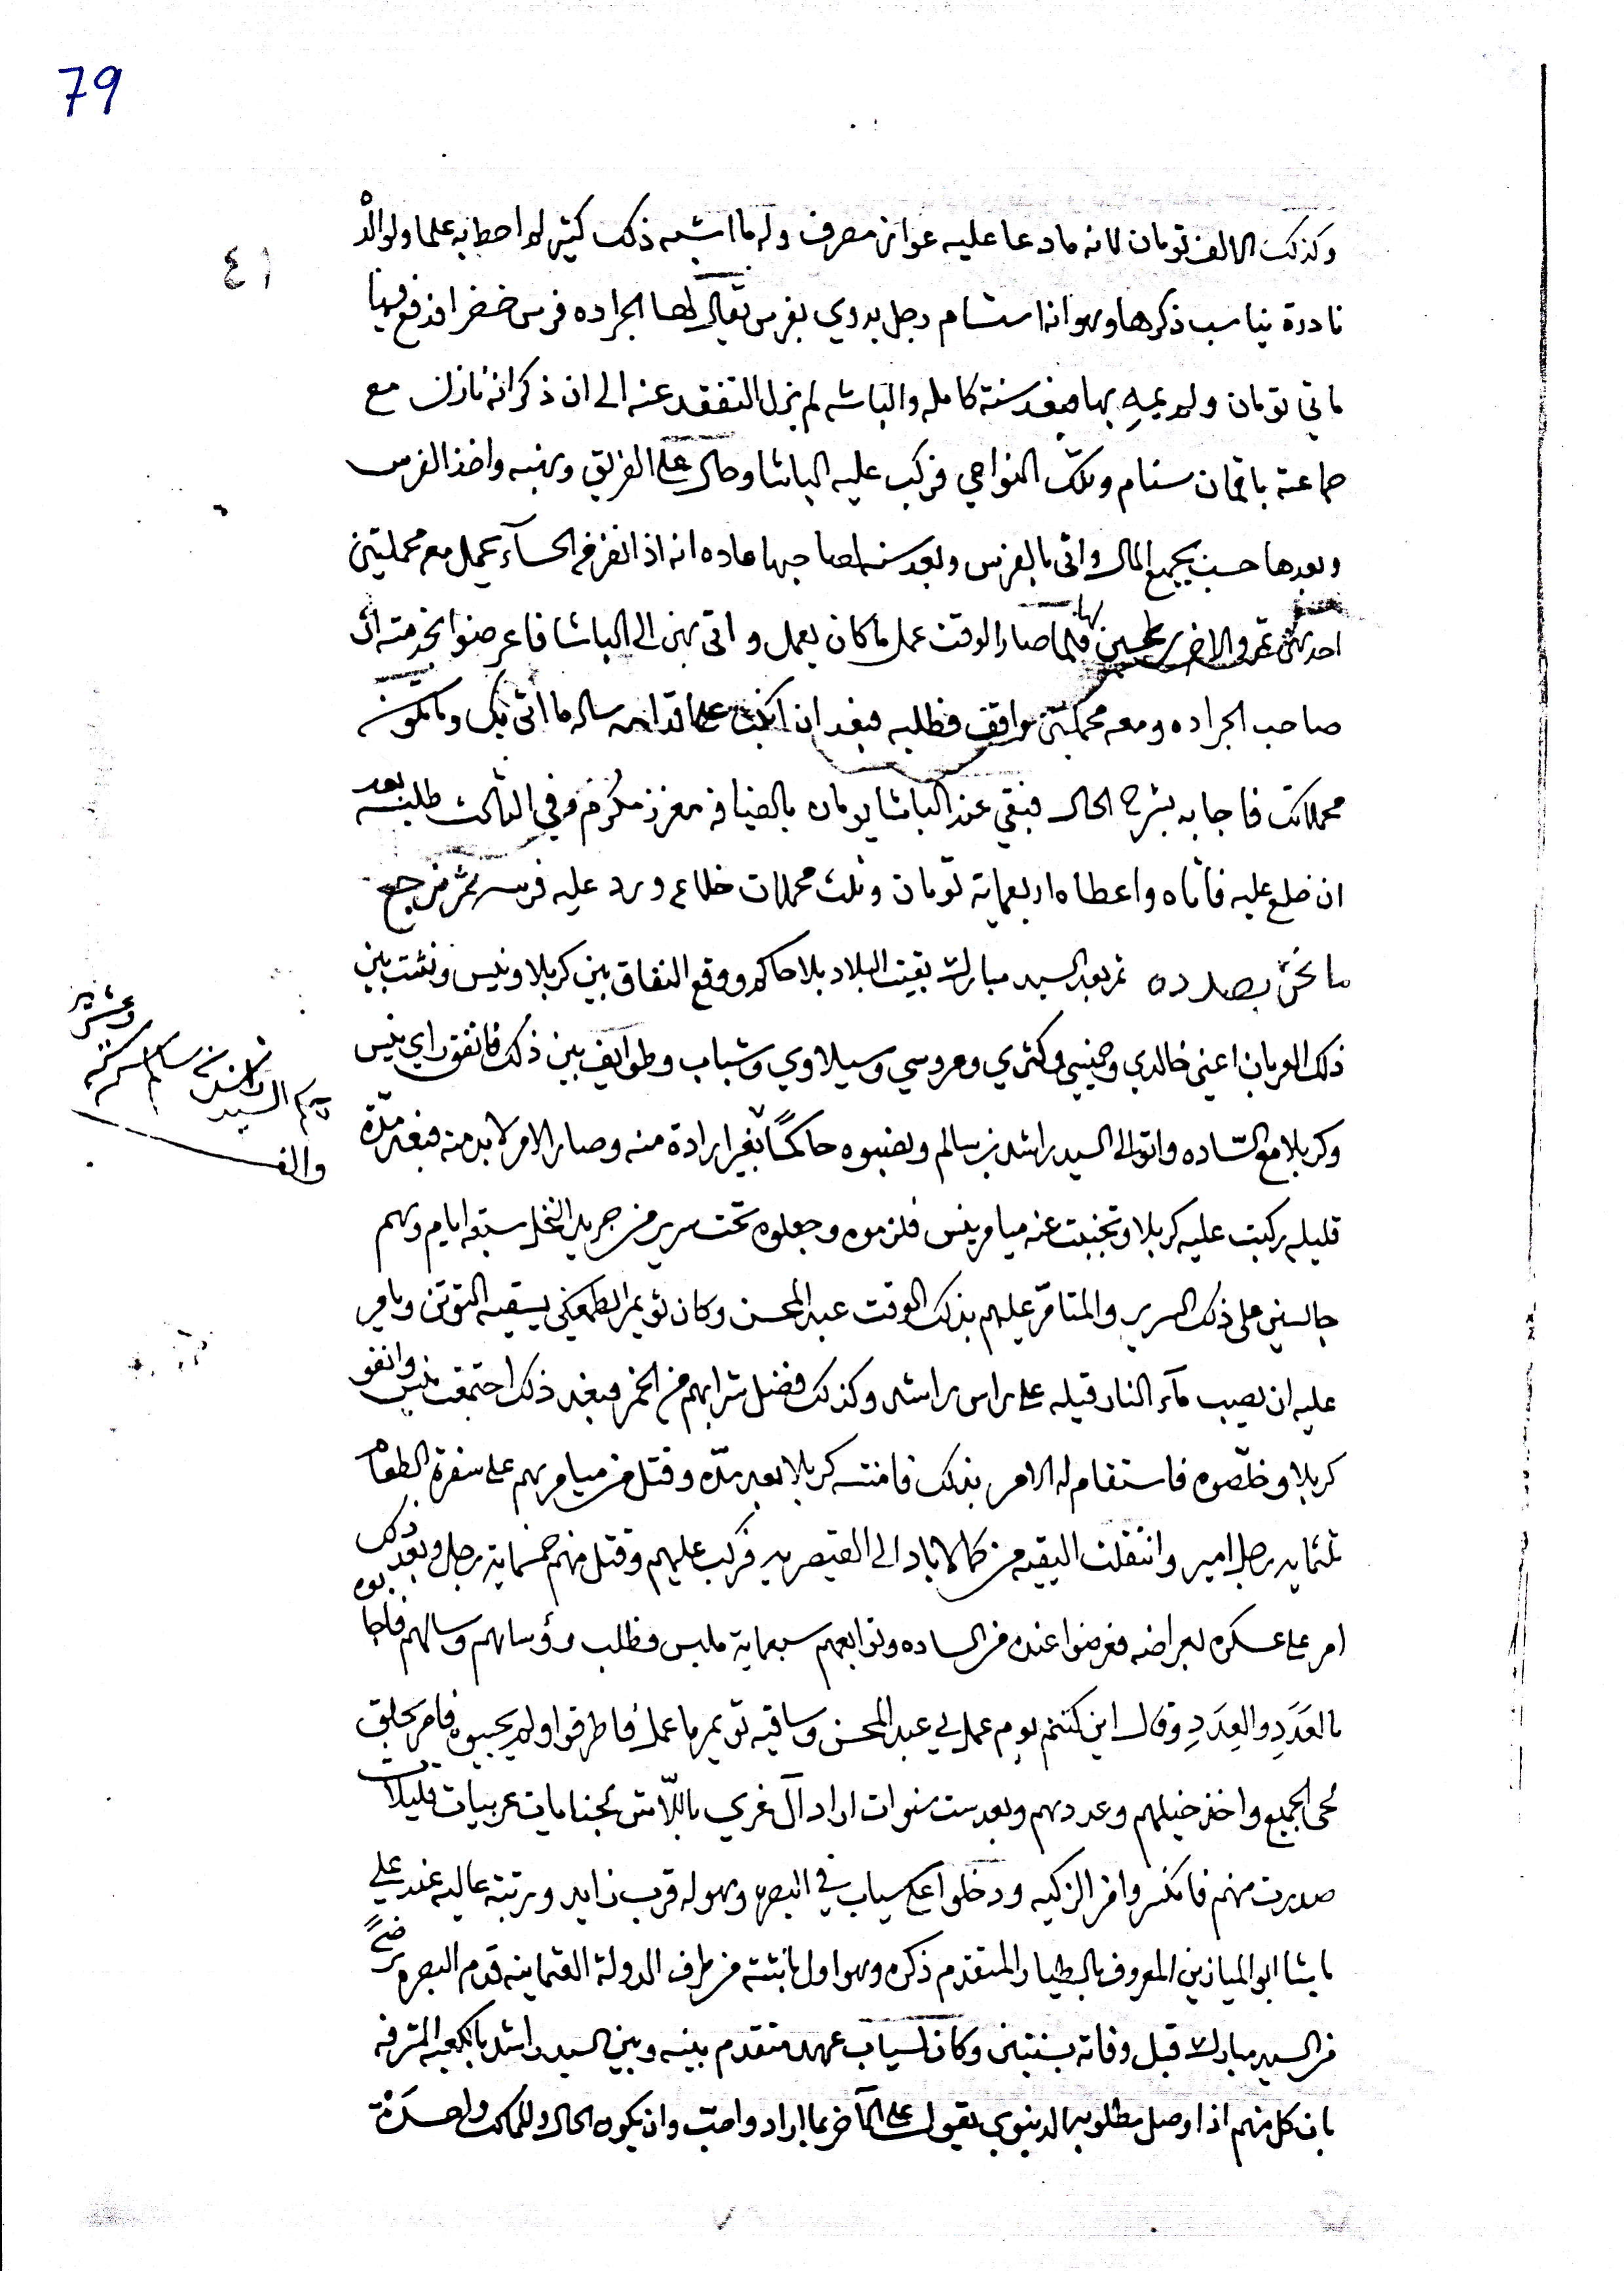 79
٤١
وكذلك الالف تومان لانه مادعا عليه عوانر مصرف وله ما اشبه ذلك كثير لم احط به علما وله الْ
نادرة يناسب ذكرها وهو انه استام رجل بدوي بفرس يقال لها الجراده فرس خضرا فدفع فيها
ماتي تومان ولم يجيه بها فبعد سنة كامله والباشه لم يزل التفقد عنه الى ان ذكر انه نازل مع
جماعته باقمان سنام وتلك النواحي فركب عليه الباشا وحال على الفريق ونهبه واخذ الفرس
وبعدها حسب بجميع المال واتى بالفرس وبعد سنه لصاحبها عاده انه اذا نفر في الحسآء يحمل معه محملتين
احدهن تمر والاخرى طحين فلما صار الوقت عمل ما كان يعمل واتى بهن الى الباشا فاعرضوا بخدمته ان
صاحب الجراده ومعه محملتين مواقف فطلبه فبعد ان قدامه ساله ما اتى بك وما تكون
محملاتك فاجابه بشرح الحال فبقي عند الباشا يومان بالضيافه معزز مكرم وفي الثالث طلبه بعد
ان خلع عليه فاتاه واعطاه اربعماية تومان وثلث محملات خلاع ورد عليه فرسه ثم نرجع
ما نحن بصدده ثم بعد السيد مبارك بقيت البلاد بلا حاكم ووقع النفاق بين كربلا ونيس ونشت بين
ذلك العربان اعني خالدي وكثري وعروسي وسيلاوي وشباب وطوايف بين ذلك فاتفق راي نيس
وكربلا مع السّاده واتوا الى السيد راشد بن سالم ونصبوه حاكماً بغير ارادة منه وصار الامر لا بد منه فبعد مدّة
حكم السيد راشد بن سالم سنة
وعشرين
والف
قليله ركبت عليه كربلا وتجنبت عنه ميامر نيس فلزموه وجعلوه تحت سرير من جريد النخل سبعة ايام وهم
جالسين على ذلك السرير والمتامّر عليهم بذلك الوقت عبد المحسن وكان ثويمر يسقيه التوتن ويامر
عليه ان يصب مآء النار قيله على راس راشد وكذلك فضل شرابهم من الخمر فبعد ذلك اجتمعت نيس واتفقو
كربلا وخلّصوه فاستقام له الامر بذلك فامنته كربلا بعد مدّه وقتل من ميامرهم على سفرة الطعام
ثلثمايه رجل امير وانتقلت البقيه من كمالاباد الى القيصريه فركب عليهم وقتل منهم خمسماية رجل وبعد ذلك
امر على عسكره بعراضه فعرضوا عنده من الساده وتوابعهم سبعماية ملبس فطلب رؤسائهم وسالهم فاجابوه
بالعَدَدِ والعِدَدِ وقال اين كنتم يوم عمل بي عبد المحسن وساقيه ثويمر ما عمل فاطرقوا ولم يجيبوه فامر بحلق
لحى الجميع واخذ خيلهم وعددهم وبعد ست سنوات اراد آل غزي بجنايات عربيات قليلات
صدرت منهم فانكسروا من الزكيه ودخلوا على سياب في البصره وهو له قرب زايد ورتبة عاليه عند علي
باشا ابو الميازين المعروف بالطيار المتقدم ذكره وهو اول باشه من طرف الدولة العثمانيه قدم البصره رضًى
من السيد مبارك قبل وفاته بسنتين وكان لسياب عهد متقدم بينه وبين السيد راشد بالكعبة المشرفه
بان كل منهم اذا وصل مطلوبه الدنيوي يقول على الآخر بما اراد واحبّ وان يكون الحال والملك واحدة